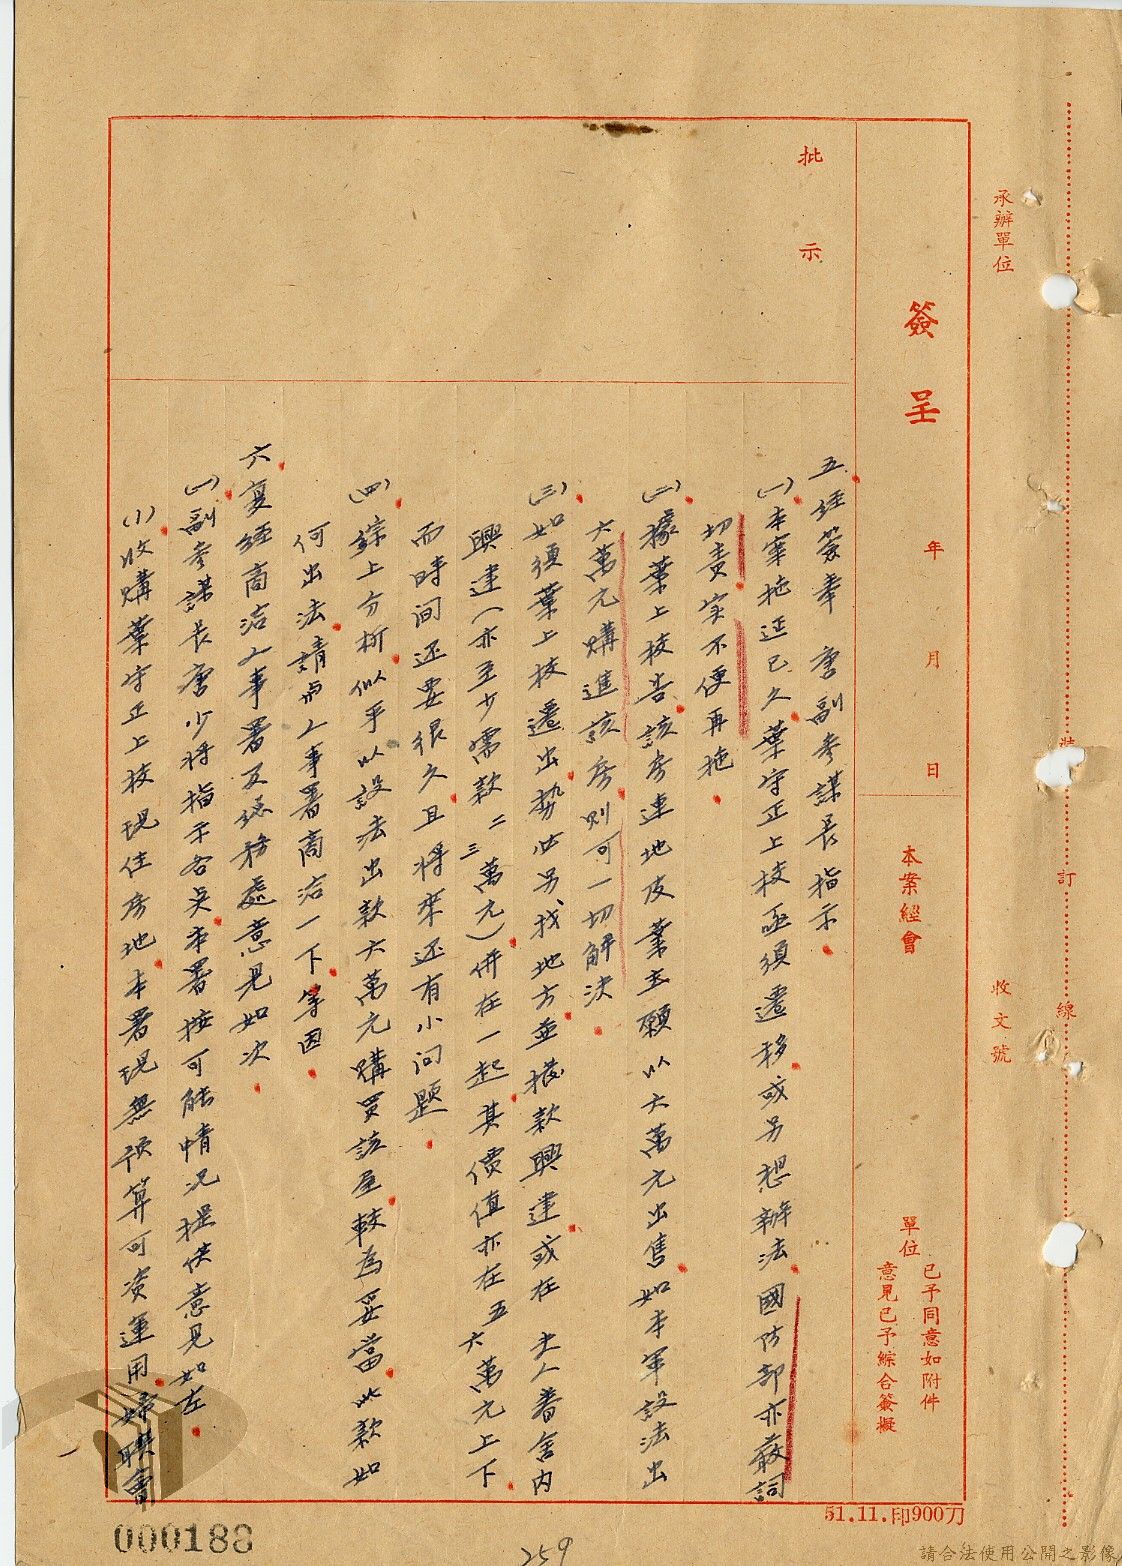 承辦單位
收文號
裝訂線
簽呈
年月日
本案經會
單位
已予同意如附件
意見已予綜合簽擬
批示
五經簽奉 唐副參謀長指示
(一)本案拖延已久葉守正上校亟須遷移或另想辦法國防部亦嚴詞
切責实不便再拖
(二)據葉上校告該房連地皮業主願以六萬元出售如本軍設法出
六萬元購進該房則可一切解決
(三)如須葉上校遷出勢必另找地方並撥款興建或在 夫人眷舍內
興建(亦至少需款二三萬元)併在一起其價值亦在五六萬元上下
而時间还要很久且將來还有小问題
(四)綜上分析似乎以設法出款六萬元購買該屋較為妥當此款如
何出法請与人事署商洽一下等因
六寔經商洽人事署及総務處意見如次
(一)副參謀長唐少將指示各点本署按可能情况提供意見如左
(1)收購葉守正上校現住房地本署現無預算可資運用婦聯會
51.11.印900刀
000188
259
請合法使用公開之影像